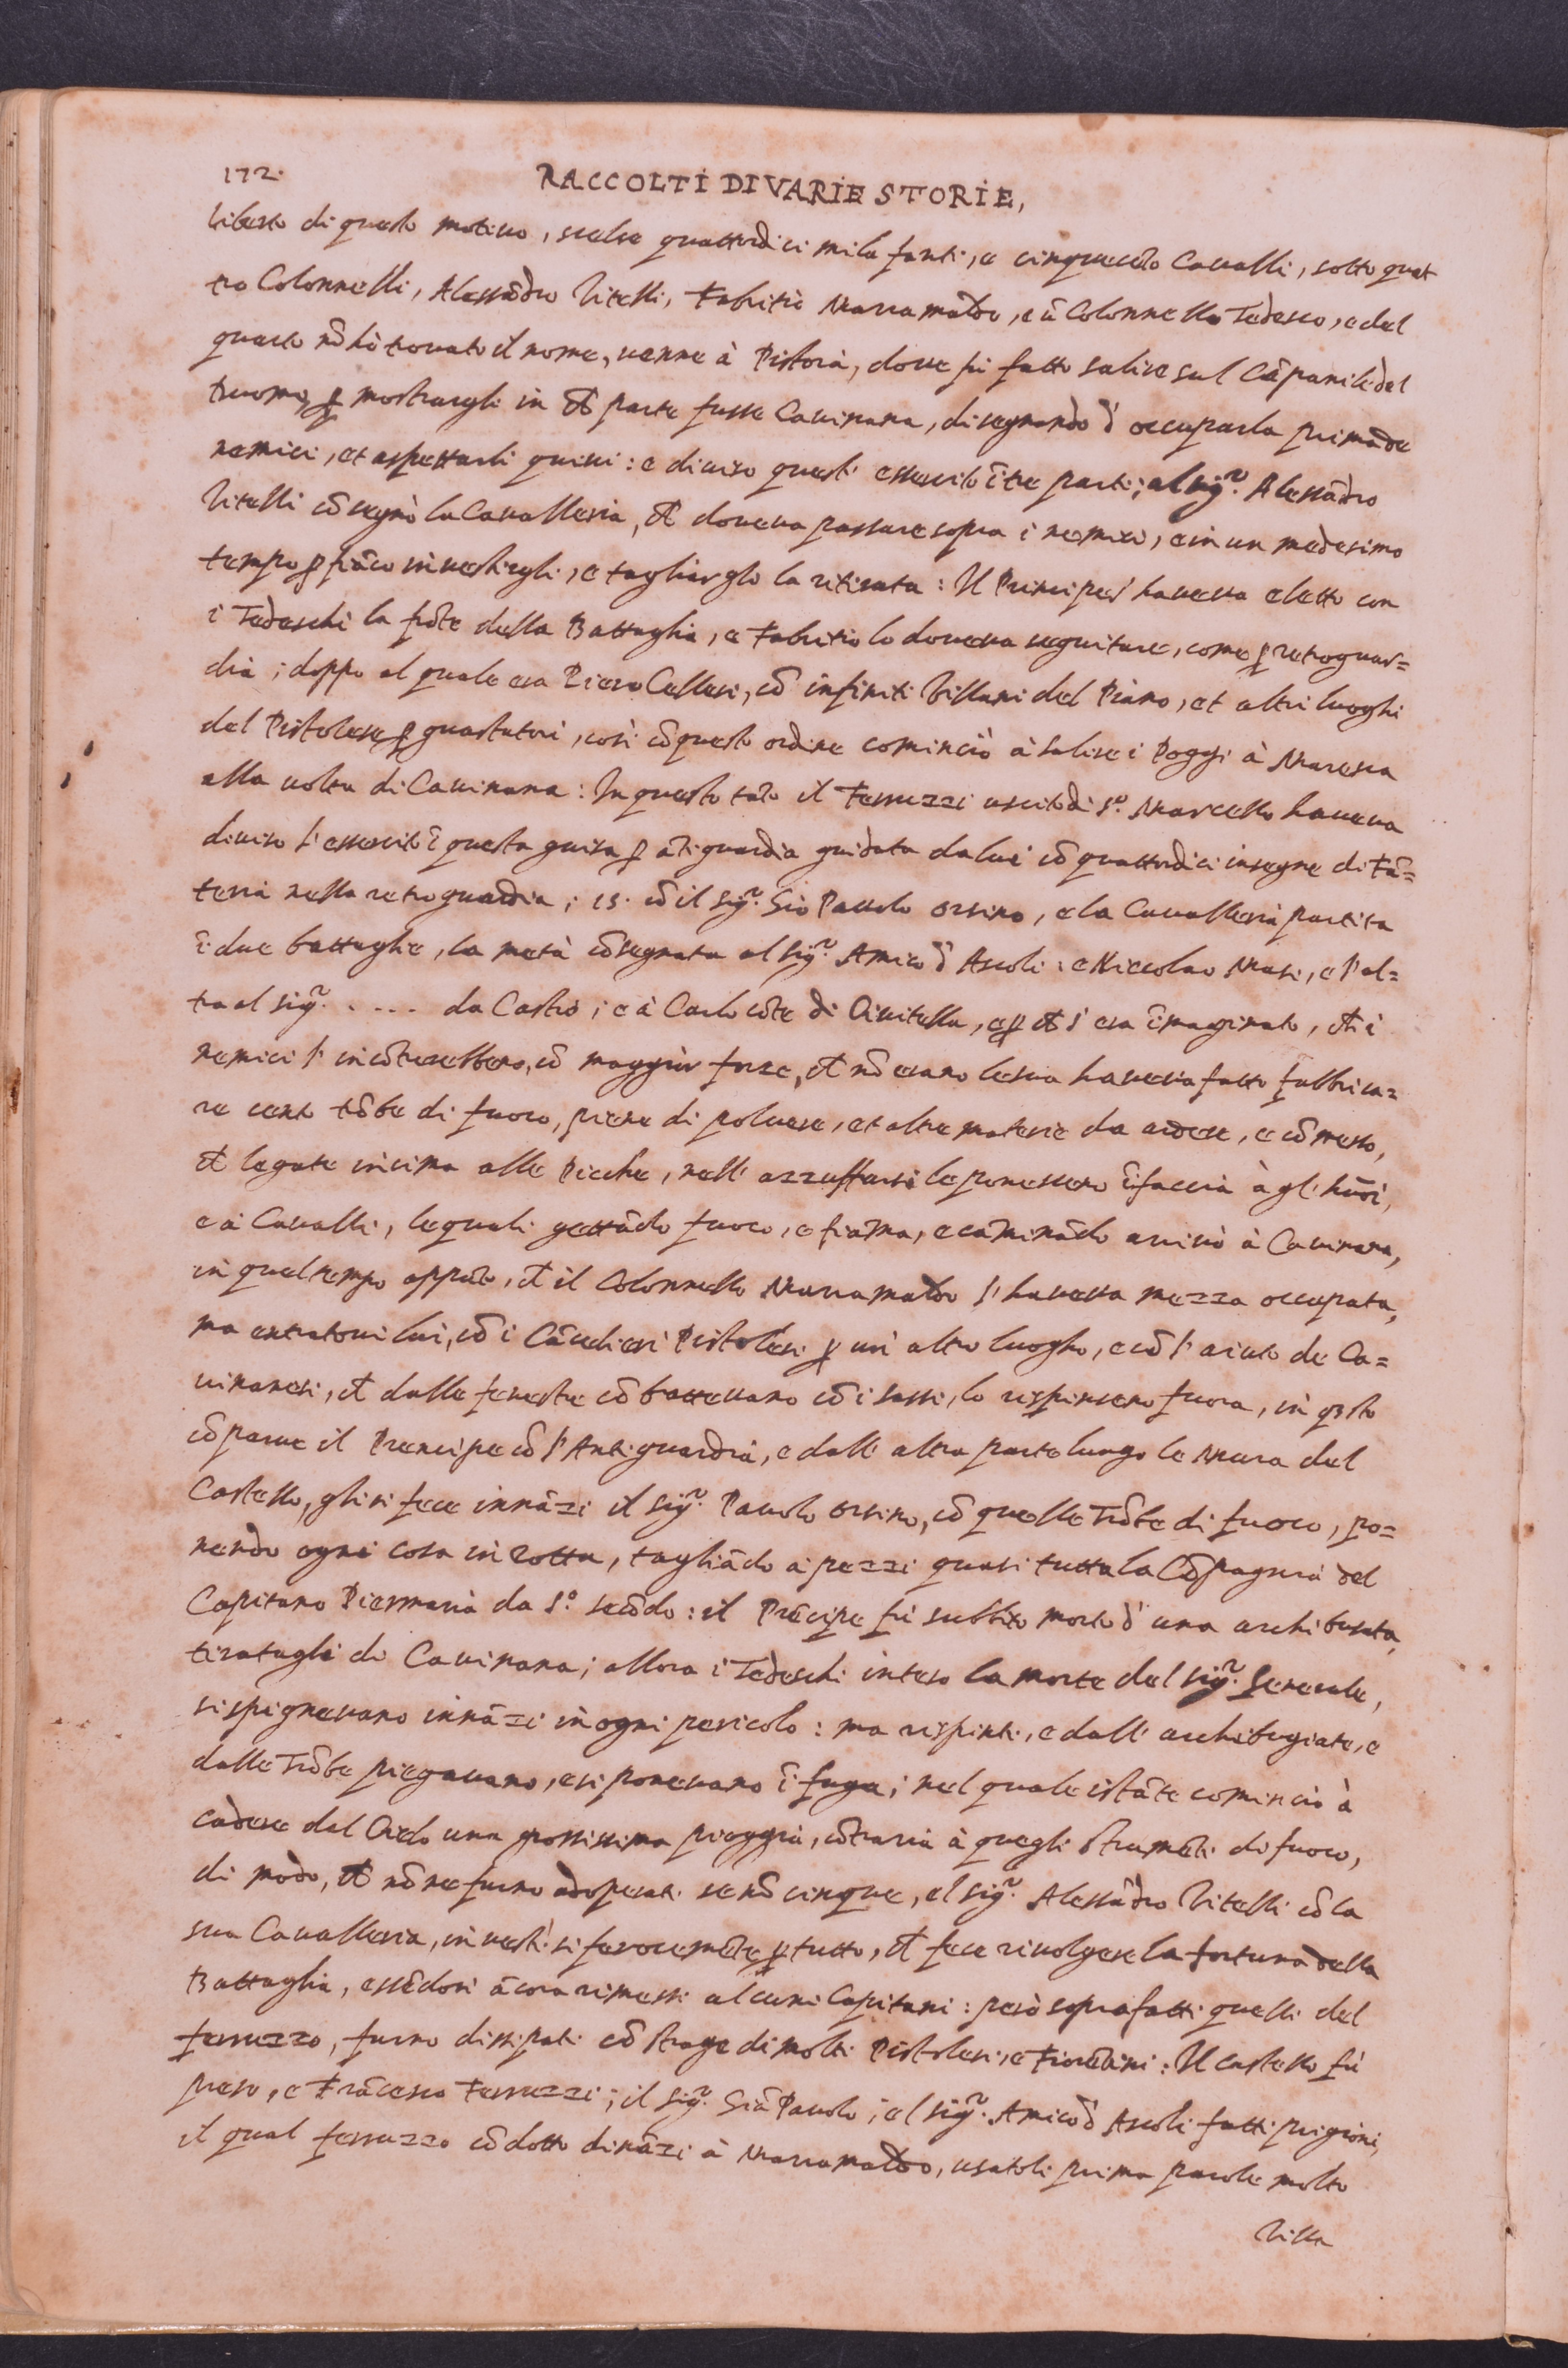 172.
RACCOLTI DI VARIE STORIE,
liberto di questo motiuo, scelse quattordici mila fanti, e cinquecẽto Caualli, sotto quat
tro Colonnelli, Alessãdro Vitelli, Fabritio Marramaldo, e ũ Colonnello Tedesco, e del
quarto nõ hò trouato il nome, uenne à Pistoia, doue fù fatto salire sul Cãpanile del
Duomo, ꝑ mostrargli in cħ parte fusse Cauinana, disegnando d' occuparla prima de
nemici, et aspettarli quiui: e diuiso quest' essercito ĩ tre parti; al sig.r Alessãdro
Vitelli cõsegnò la Caualleria, cħ doueua passare sopra i nemici, e in un medesimo
tempo ꝑ fiãco inuestirgli, e tagliarglo la ritirata: Il Principe s' haueua eletto con
i Tedeschi la frõte della Battaglia, e Fabritio lo doueua seguitare, come ꝑ retroguar=
dia; doppo al quale era Piero Cellesi, cõ infiniti Villani del Piano, et altri luoghi
del Pistolese ꝑ guastatori, così cõ questo ordine cominciò à salire i Poggi à Maresca
alla uolta di Cauinana: In questo tãto il Ferruzzi uscito di S.o Marcello haueua
diuiso l' essercito ĩ questa guisa ꝑ ãtiguardia guidata da lui cõ quattordici insegne di Fã=
teria nella retroguardia; 15. cõ il sig.r Gio Pauolo Orsino, e la Caualleria partita
ĩ due battaglie, la metà cõsegnata al sig.r Amico d' Ascoli: e Niccolao Masi, e l' al=
tra al sig.r ..... da Castro; e à Carlo cõte di Ciuitella, e ꝑ cħ s' era ĩmaginato, cħ i
nemici l' incõtrerebbero, cõ maggior forze, cħ nõ erano le sua haueua fatto fabbrica=
re cento trõbe di fuoco, piene di poluere, et altre materie da ardere, e cõmesso,
cħ legate in cima alle Picche, nell' azzuffarsi le ponessero ĩ faccia à gl' huõi,
e à Caualli, le quali gettãdo fuoco, e fiãma, e caminãdo arriuò à Cauinana,
in quel tempo appũto, cħ il Colonnello Marramaldo l' haueua mezza occupata,
ma entratoui lui, cõ i Cãcelieri Pistolesi ꝑ un' altro luogho, e cõ l' aiuto de Ca=
uinanesi, cħ dalle fenestre cõbatteuano cõ i sassi, lo rispinsero fuora, in qsto
cõparue il Prencipe cõ l' Antiguardia, e dall' altra parte lungo le Mura del
Castello, gli si fece innãzi il sig.r Pauolo Orsino, cõ quelle Trõbe di fuoco, po=
nendo ogni cosa in rotta, tagliãdo a pezzi quasi tutta la Cõpagnia del
Capitano Piermaria da S.o Secõdo: il Prẽcipe fù subbito morto d' una archibusata,
tiratagli di Cauinana; allora i Tedeschi inteso la morte del sig.r Generale,
si spigneuano innãzi in ogni pericolo: ma rispinti, e dall' archibugiate, e
dalle Trõbe piegauano, e si poneuano ĩ fuga; nel quale istãte cominciò à
cadere dal Cielo una grossissima pioggia, cõtraria à quegli strumẽti di fuoco,
di modo, cħ nõ ne furno adoperati se nõ cinque, el sig.r Alessãdro Vitelli cõ la
sua Caualleria, inuestì sì ferocemẽte ꝑ tutto, cħ fece riuolgere la fortuna della
Battaglia, essẽdosi ãcora rimessi alcuni Capitani: però soprafatti quelli del
ferruzzo, furno dissipati cõ strage di molti Pistolesi, e Fiorẽtini: Il Castello fù
preso, e Frãcesco Ferruzzi; il sig.r Giã Pauolo; el sig.r Amico d' Ascoli fatti prigioni,
il qual ferruzzo cõdotto dinãzi à Marramaldo, usatoli prima parole molto
Villa